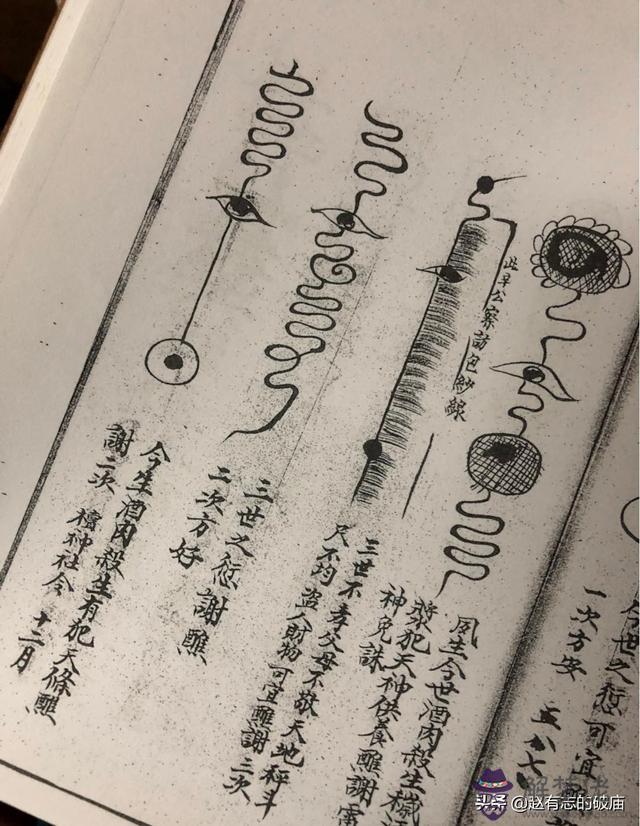 今世之愆可宜
一次方安 五六七
夙生今世酒肉殺生穢
漿犯天神供養醮謝雷
神免誅
三世不孝父母不敬天地秤斗
尺不均 盗人財物可宜醮謝 三次
三世之愆謝醮
二次方好
今生酒肉殺生有犯天條醮
謝二次 神社令 十二月
色紗線
头条 @赵有志的破庙